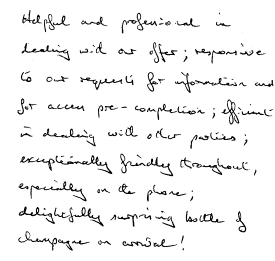 Helpful and professional in
dealing with our offer; responsive
to our requests for information and
for access pre-completion; efficient
in dealing with other parties;
exceptionally friendly throughout,
especially on the phone;
delightfully surprising bottle of
champagne on arrival!